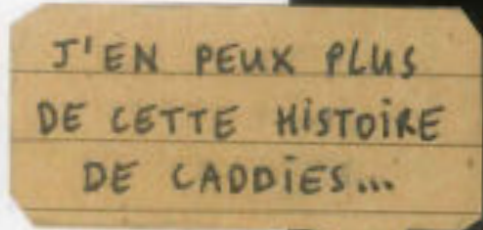 J'EN PEUX PLUS
DE CETTE HISTOIRE
DE CADDIES...